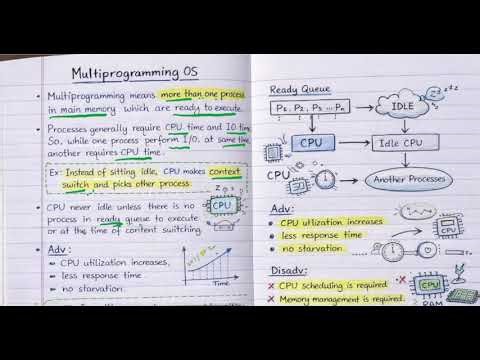 Multiprogramming OS
• Multiprogramming means more than one process
in main memory which are ready to execute.
• Processes generally require CPU time and IO time.
So, while one process perform I/O, at same time
another requires CPU time.
Ex: Instead of sitting idle, CPU makes context
switch and picks other process
• CPU never idle unless there is no
process in ready queue to execute
or at the time of content switching.
CPU
• Adv:
• CPU utilization increases,
• less response time
• no starvation.
Time
Ready Queue
P1, P2, P3 ... Pn
IDLE
zzz
CPU
Idle CPU
CPU
Another Processes
Adv:
• CPU utlization increases
• less response time
• no starvation.
CPU
Disadv:
× CPU scheduling is required ×
× Memory management is required. ×
CPU
RAM